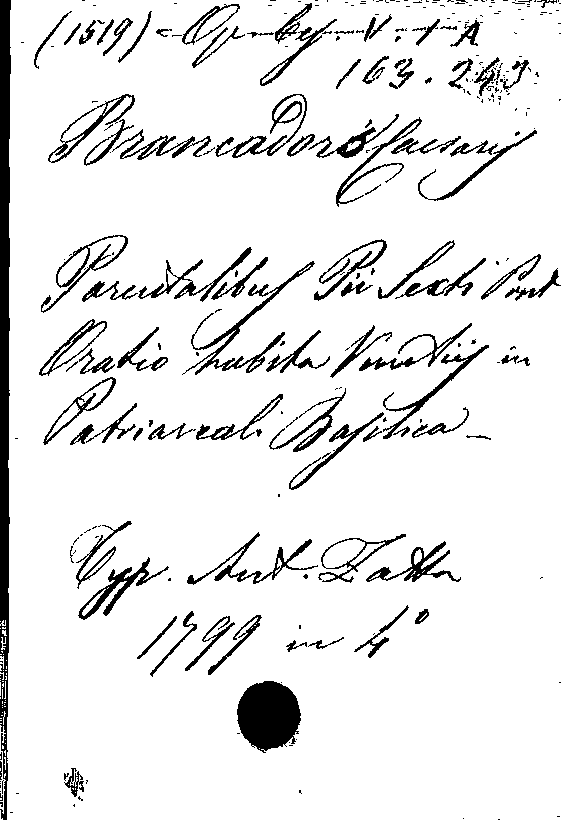 (1519)
163. 243
Brancadoro Caesaris
Parentalibus Pii Sexti Pont
Oratio habita Venetiis in
Patriarcali Basilica -
Typ. Ant. Zatta
1799 in 4°